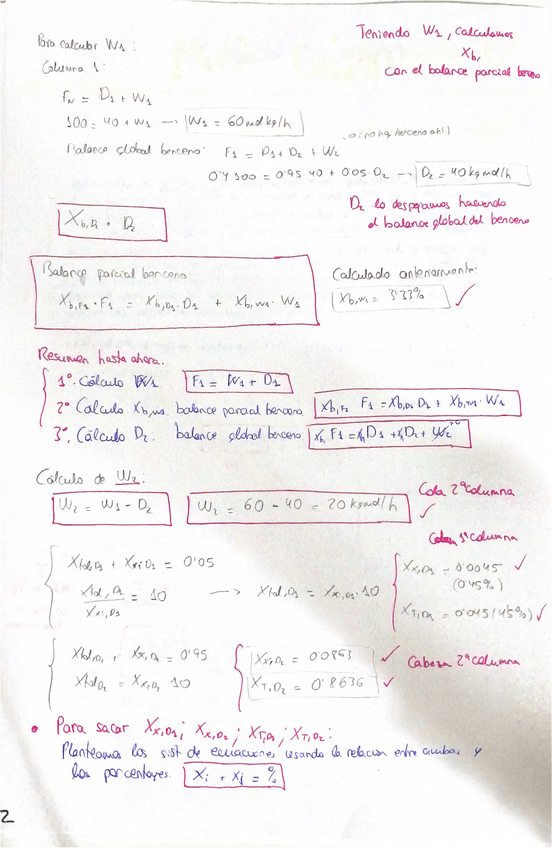 Para calcular W1:
Teniendo W1, calculamos
Xb,
con el balance parcial benceno
Columna 1:
FN = D1 + W1
100 = 40 + W1 → W1 = 60 mol kg/h
0 (no hay benceno ahí)
Balance global benceno: F1 = D1 + D2 + W2
0'4 100 = 0'95·40 + 0'05·D2 → D2 = 40 kg mol/h
D2 lo despejamos haciendo
el balance global del benceno
Xb,D2 · D2
Balance parcial benceno:
Xb,F1·F1 = Xb,D1·D1 + Xb,W1·W1
Calculado anteriormente:
Xb,W1 = 3'33%
Resumen hasta ahora:
1º. Cálculo W1 F1 = W1 + D1
2º Cálculo Xb,W1 balance parcial benceno Xb,F1 F1 = Xb,D1 D1 + Xb,W1·W1
3º. Cálculo D2: balance global benceno F1 = D1 + D2 + W2
Cálculo de W2:
W2 = W1 - D2
W2 = 60 - 40 = 20 kgmol/h
Cola 2ª columna
1ª columna
Xtol,D1 + Xxi,D1 = 0'05
Xtol,D1 / Xxi,D1 = 10 → Xtol,D1 = Xxi,D1·10
Xx,D1 = 0'0045
(0'45%)
XT,D1 = 0'045 (4'5%)
Xtol,D2 + Xx,D2 = 0'95
XtolD2 = Xx,D2 10
Xx,D2 = 0'0863
XT,D2 = 0'8636
Cabeza 2ª columna
• Para sacar Xx,D1; Xx,D2; XT,D1; XT,D2:
Planteamos los sist de ecuaciones usando la relación entre ambas y
los porcentajes. Xi + Xj = %
2